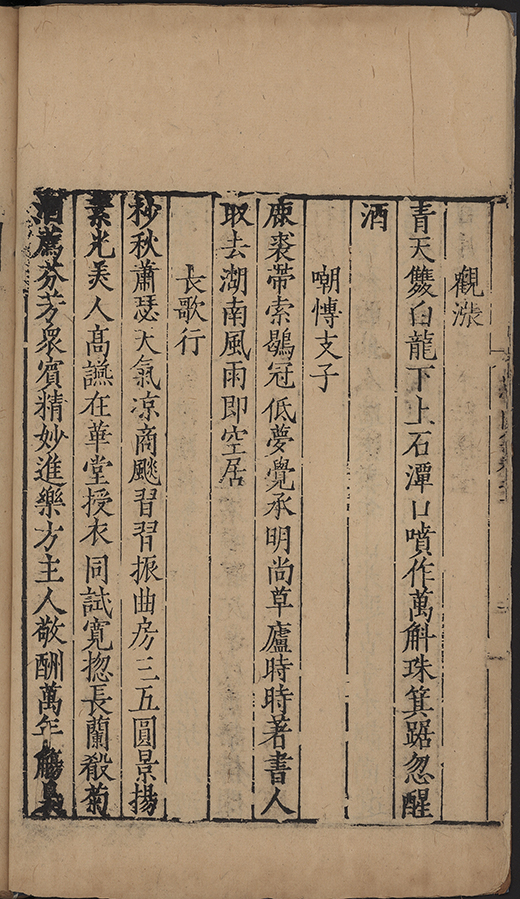 觀漲
青天雙白龍下上石潭口噴作萬斛珠箕踞忽醒
酒
嘲愽支子
鹿裘帶索鶡冠低夢覺承明尚草廬時時著書人
取去湖南風雨即空居
長歌行
杪秋蕭瑟天氣凉商飈習習振曲房三五圓景揚
素光美人高讌在華堂授衣同試寛揔長蘭殽菊
酒薦芬芳衆賓精妙進樂方主人敬酬萬年觴